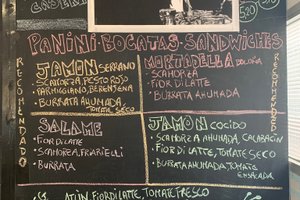 PANINI-BOGATAS-SANDWICHES
RECOMENDADO
JAMON SERRANO
SCAMORZA, PESTO ROJO
PARMIGGIANO, BERENJENA
BURRATA AHUMADA,
TOMATE SECO
MORTADELLA BOLOÑA
SCAMORZA
FIOR DI LATTE
BURRATA AHUMADA
RECOMENDADO
SALAME
FIOR DI LATTE
SCAMORZA, FRIARIELLI
BURRATA
JAMON COCIDO
SCAMORZA AHUMADA, CALABACIN
FIOR DI LATTE, TOMATE SECO
BURRATA AHUMADA, TOMATE
ENSALADA
ATÚN FIOR DI LATTE, TOMATE FRESCO